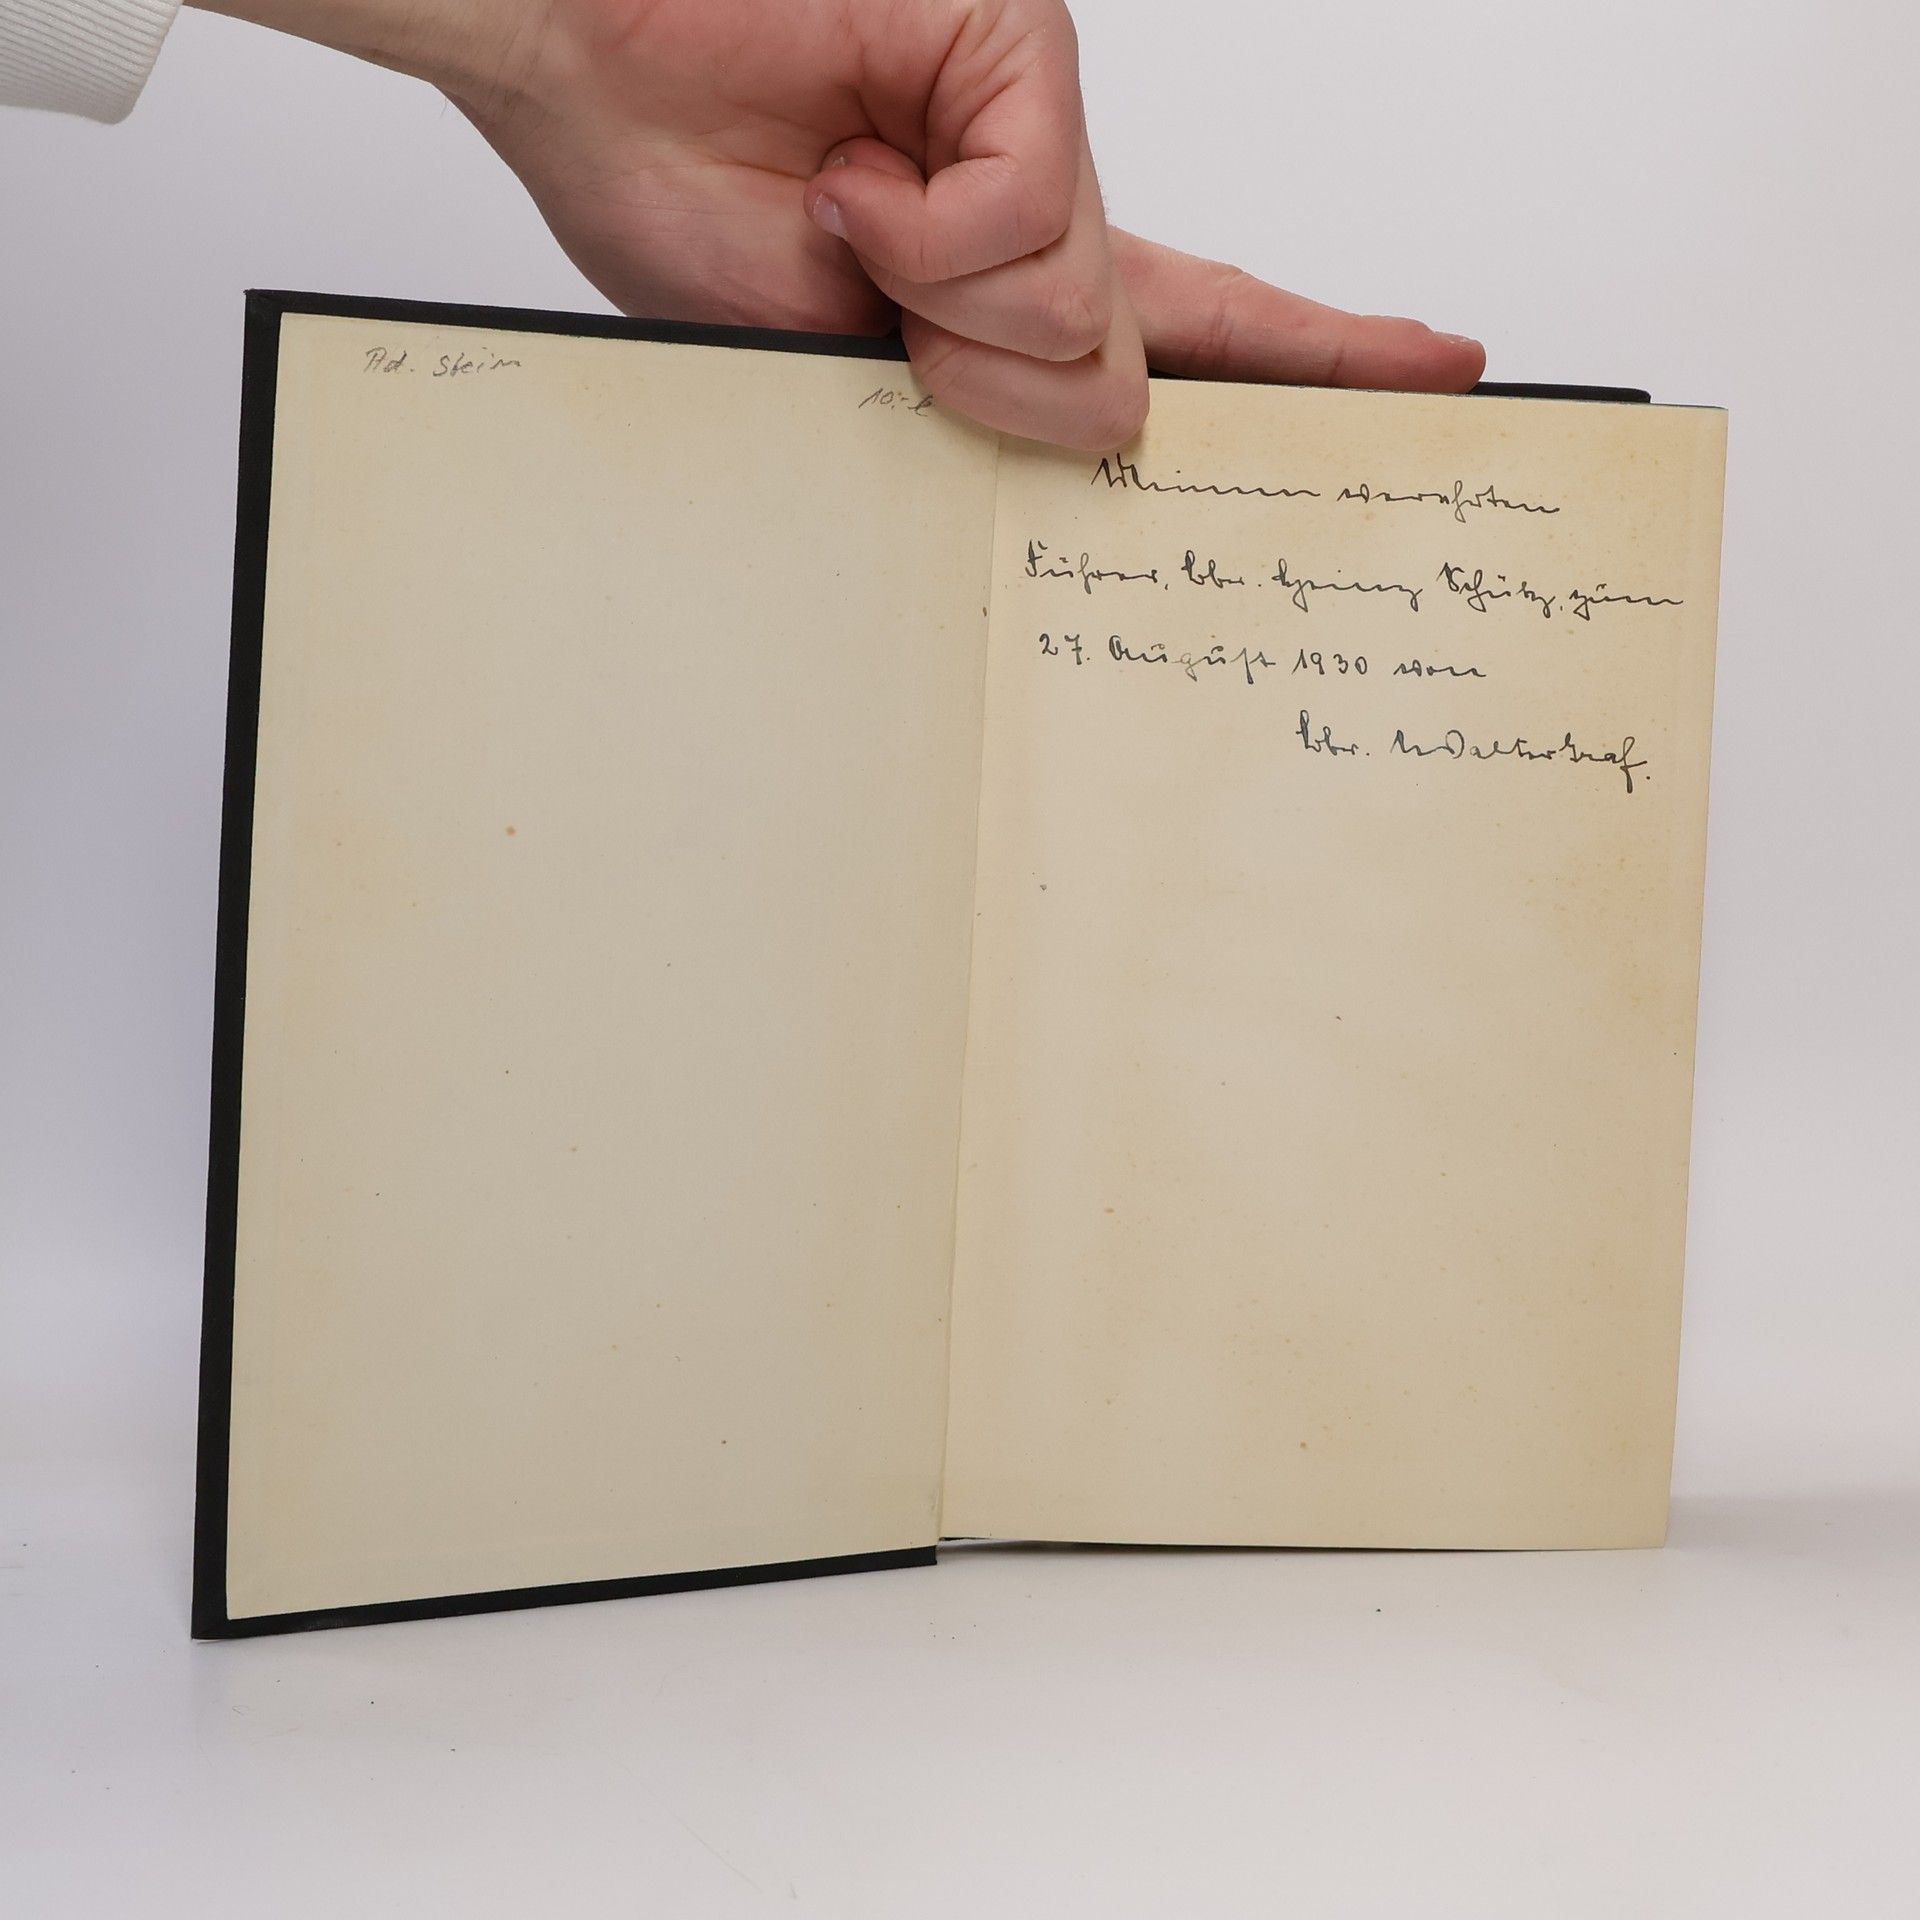 Ad. Stein
10.-
Meinem verehrten
Führer, Bbr. Heinz Schütz, zum
27. August 1930 von
Bbr. Walter Graf.